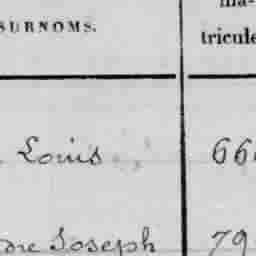 SURNOMS.
ma-
tricule
Louis
66
dre Joseph
79